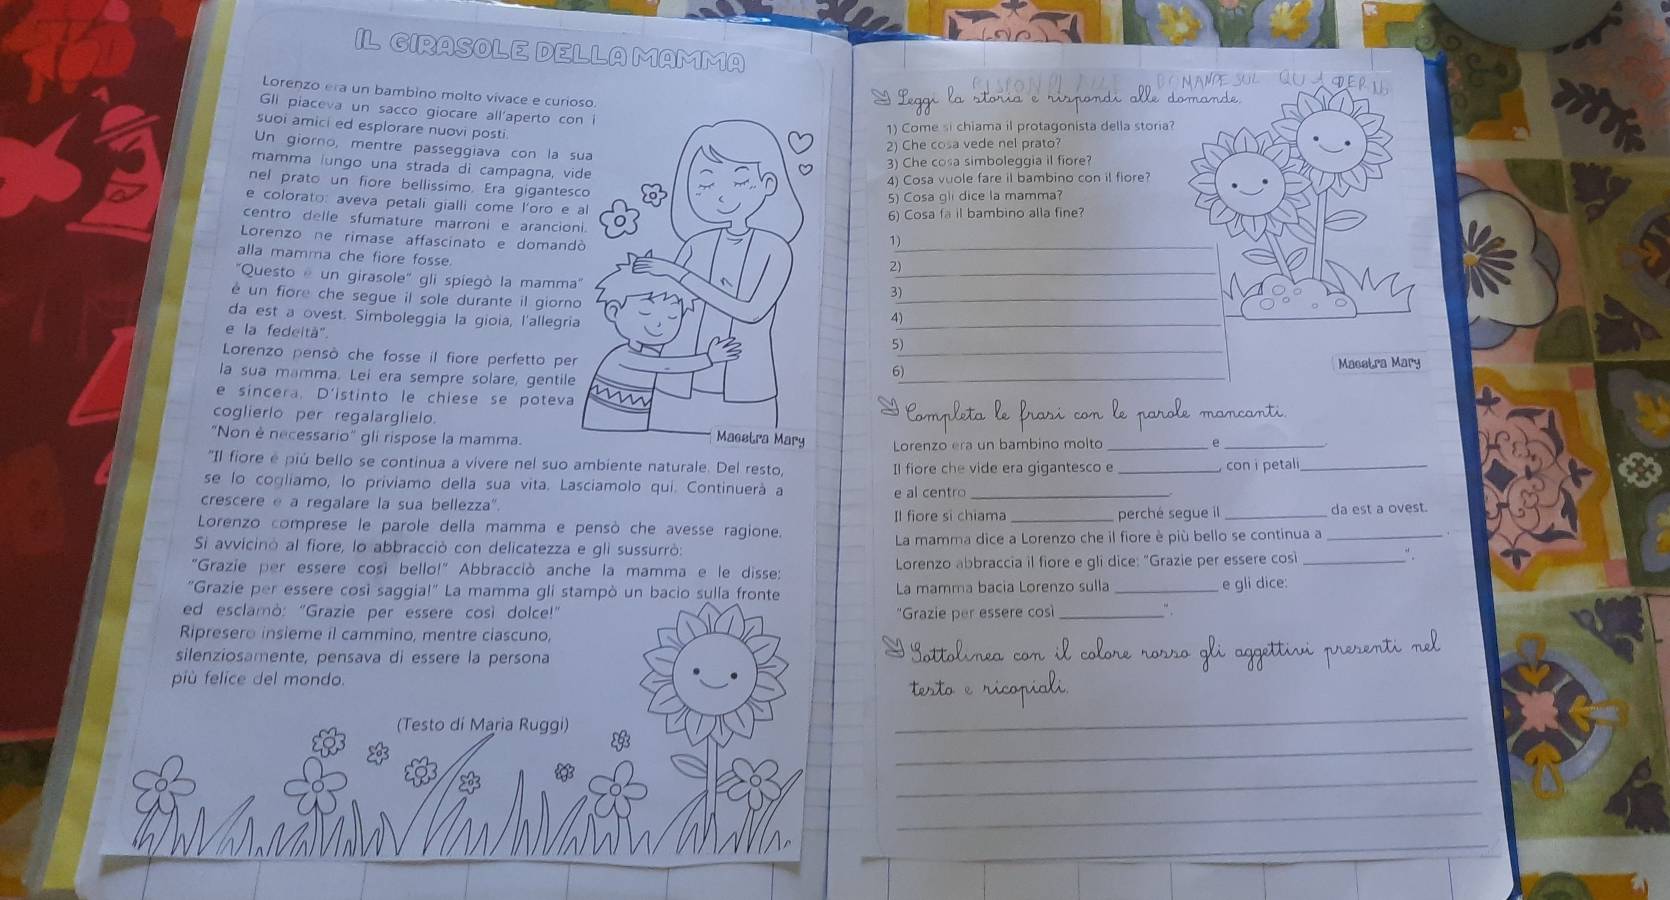 IL GIRASOLE DELLA MAMMA
Lorenzo era un bambino molto vivace e curioso.
Gli piaceva un sacco giocare all'aperto con i
suoi amici ed esplorare nuovi posti.
Un giorno, mentre passeggiava con la sua
mamma lungo una strada di campagna, vide
nel prato un fiore bellissimo. Era gigantesco
e colorato: aveva petali gialli come l'oro e al
centro delle sfumature marroni e arancioni.
Lorenzo ne rimase affascinato e domandò
alla mamma che fiore fosse.
"Questo è un girasole" gli spiegò la mamma"
è un fiore che segue il sole durante il giorno
da est a ovest. Simboleggia la gioia, l'allegria
e la fedeltà".
Lorenzo pensò che fosse il fiore perfetto per
la sua mamma. Lei era sempre solare, gentile
e sincera. D'istinto le chiese se poteva
coglierlo per regalarglielo.
"Non è necessario" gli rispose la mamma.
Maestra Mary
"Il fiore è più bello se continua a vivere nel suo ambiente naturale. Del resto,
se lo cogliamo, lo priviamo della sua vita. Lasciamolo qui. Continuerà a
crescere e a regalare la sua bellezza".
Lorenzo comprese le parole della mamma e pensò che avesse ragione.
Si avvicinò al fiore, lo abbracciò con delicatezza e gli sussurrò:
"Grazie per essere così bello!" Abbracciò anche la mamma e le disse:
"Grazie per essere così saggia!" La mamma gli stampò un bacio sulla fronte
ed esclamò: "Grazie per essere così dolce!"
Ripresero insieme il cammino, mentre ciascuno,
silenziosamente, pensava di essere la persona
più felice del mondo.
(Testo di Maria Ruggi)
DOMANDE SUL QUADERNO
Leggi la storia e rispondi alle domande.
1) Come si chiama il protagonista della storia?
2) Che cosa vede nel prato?
3) Che cosa simboleggia il fiore?
4) Cosa vuole fare il bambino con il fiore?
5) Cosa gli dice la mamma?
6) Cosa fa il bambino alla fine?
1)
2)
3)
4)
5)
6)
Maestra Mary
Completa le frasi con le parole mancanti.
Lorenzo era un bambino molto ________ e ________.
Il fiore che vide era gigantesco e ________, con i petali________
e al centro ________.
Il fiore si chiama ________ perché segue il ________ da est a ovest.
La mamma dice a Lorenzo che il fiore è più bello se continua a ________.
Lorenzo abbraccia il fiore e gli dice: "Grazie per essere così ________".
La mamma bacia Lorenzo sulla ________ e gli dice:
"Grazie per essere così ________".
Sottolinea con il colore rosso gli aggettivi presenti nel
testo e ricopiali.